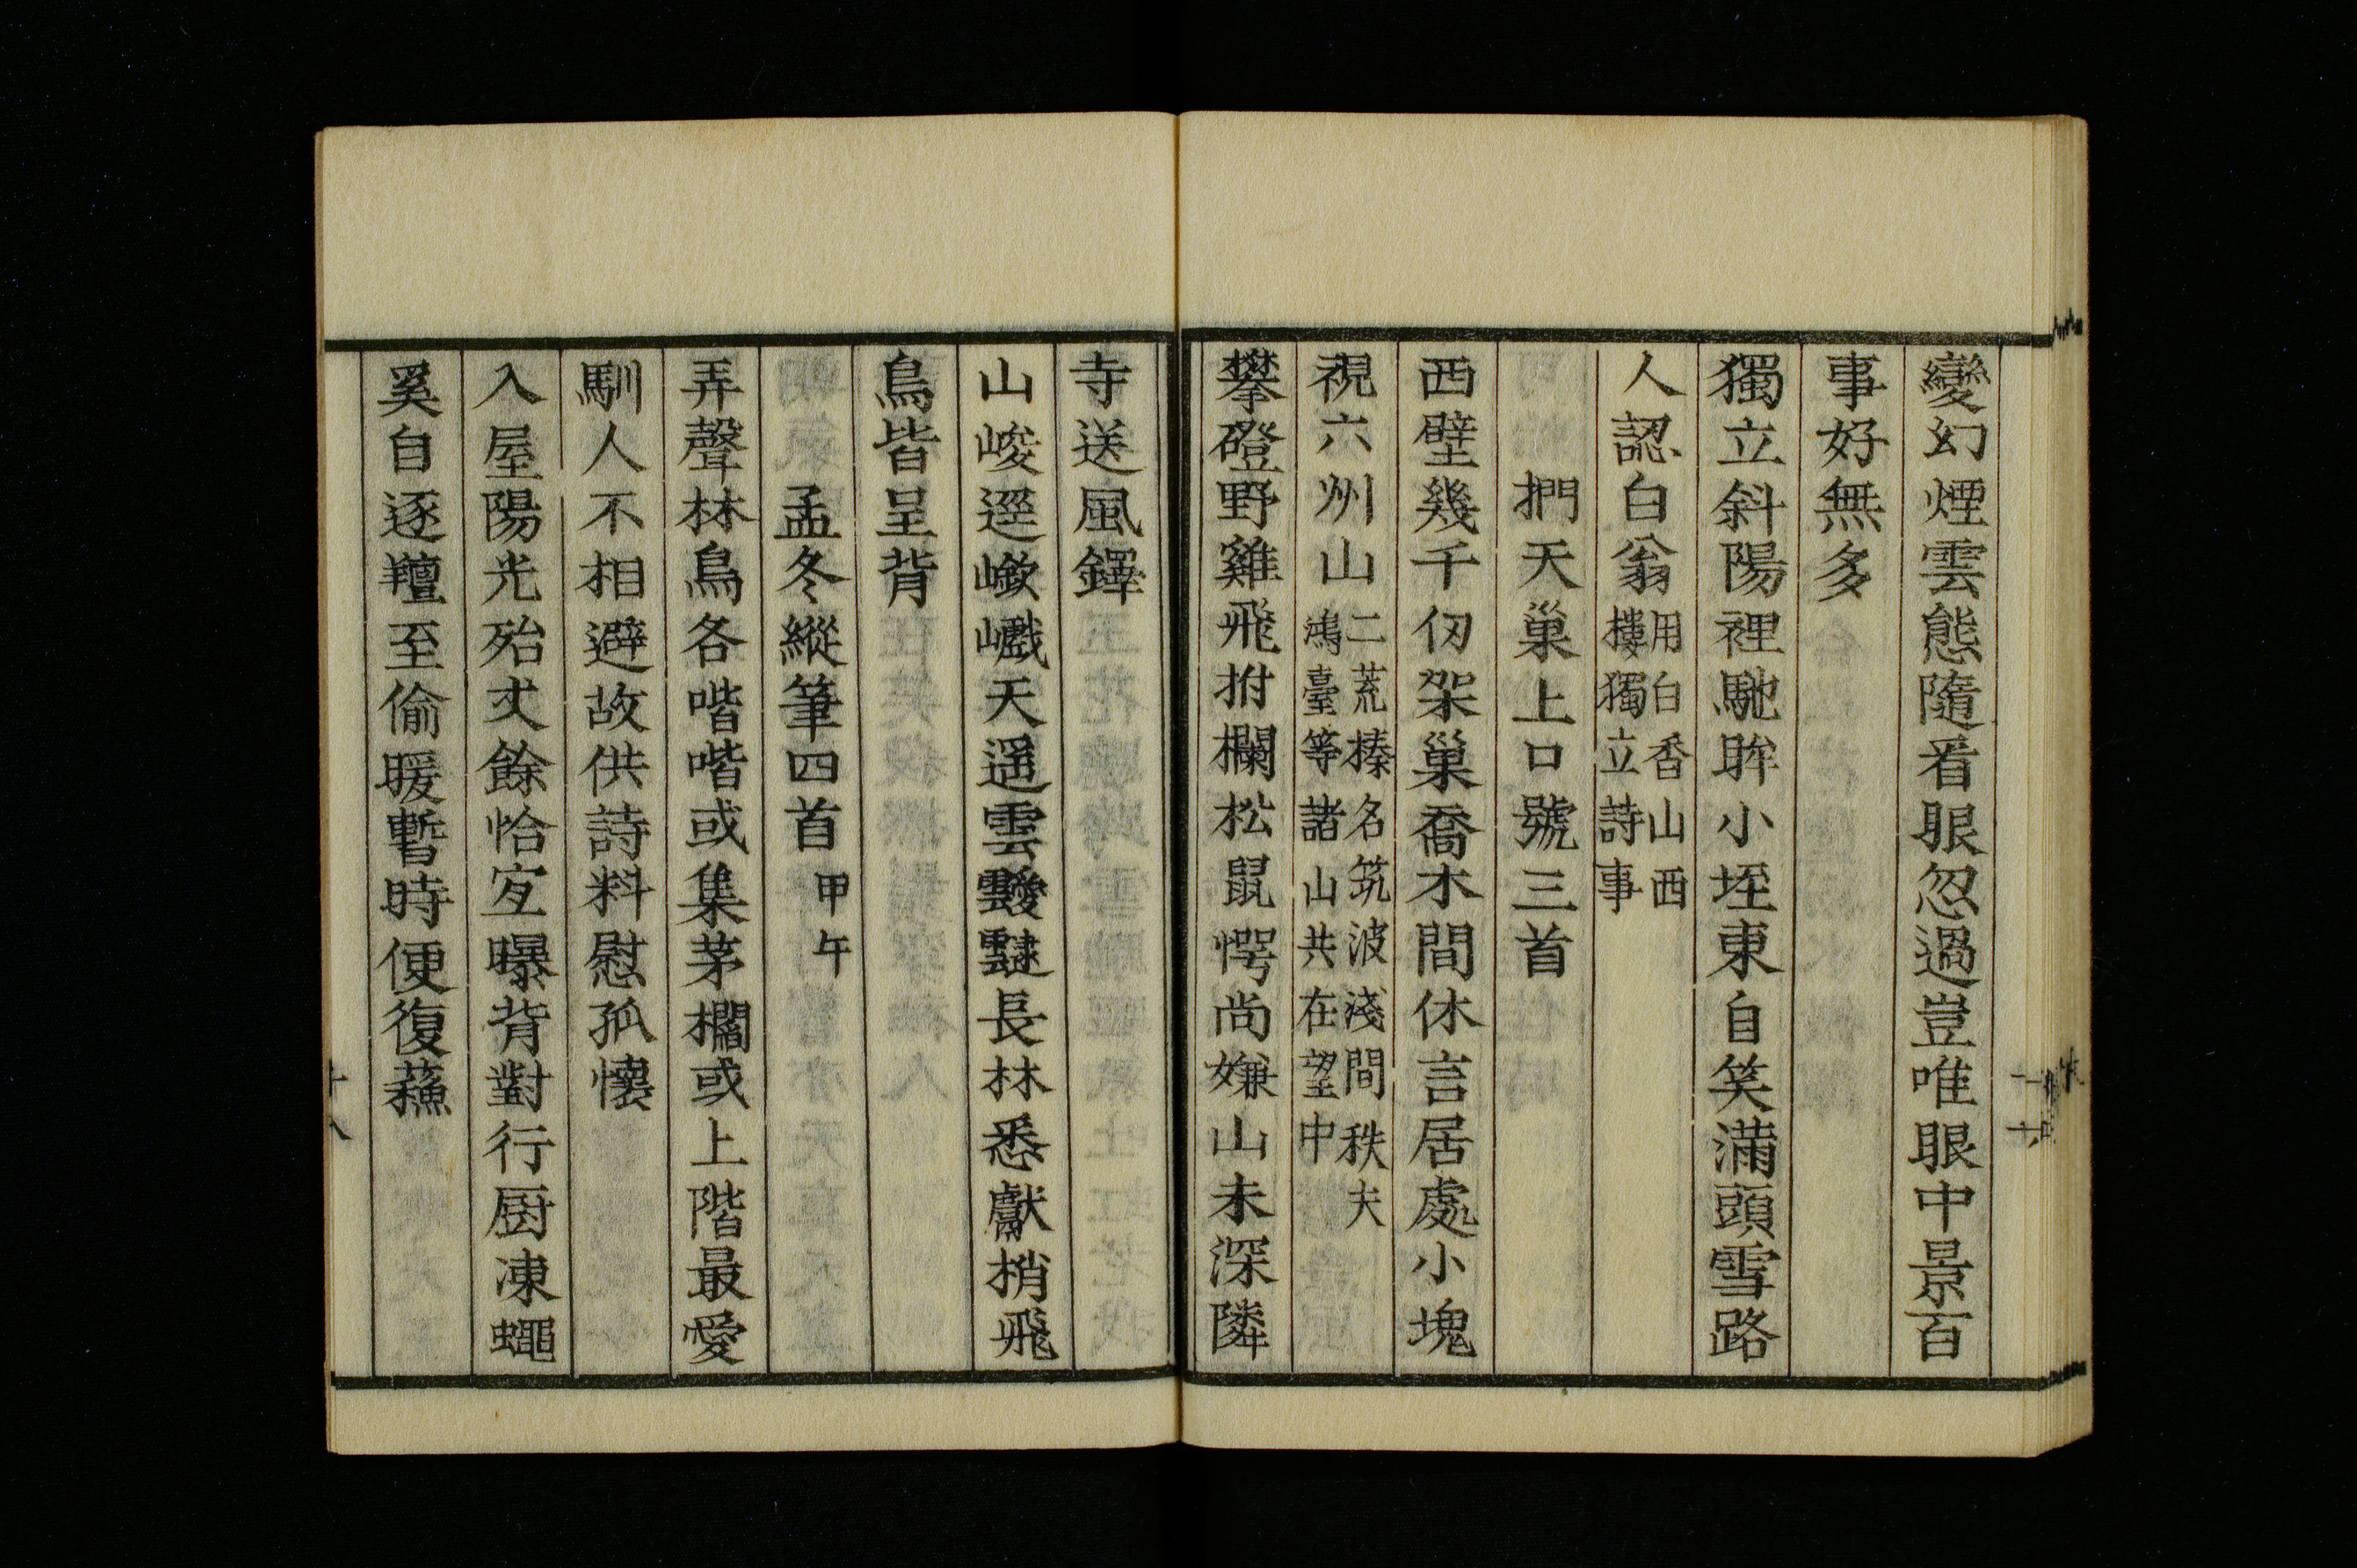 變幻煙雲態隨看眼忽過豈唯眼中景百
事好無多
獨立斜陽裡馳眸小垤東自笑滿頭雪路
人認白翁用白香山西
樓獨立詩事
捫天巢上口號三首
西壁幾千仞架巢喬木間休言居處小塊
視六州山二荒榛名筑波淺間秩夫
鴻臺等諸山共在望中
攀磴野雞飛拊欄松鼠愕尚嫌山未深隣
寺送風鐸
山峻逕嶔巇天遥雲靉靆長林悉獻梢飛
鳥皆呈背
孟冬縱筆四首甲午
弄聲林鳥各喈喈或集茅欄或上階最愛
馴人不相避故供詩料慰孤懷
入屋陽光殆丈餘恰宐曝背對行厨凍蠅
奚自逐羶至偷暖暫時便復蘓
十八